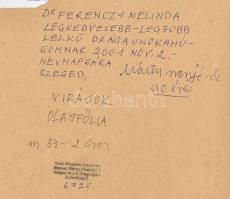 DR FERENCZY MELINDA
LEGKEDVESEBB-LEGJOBB
LELKŰ DRÁGA UNOKAHÚ-
GOMNAK 2001 NOV. 2.-
NÉVNAPJÁRA
SZEGED,
90 éves
VIRÁGOK
OLAJFÓLIA
34-2 cm
6724.